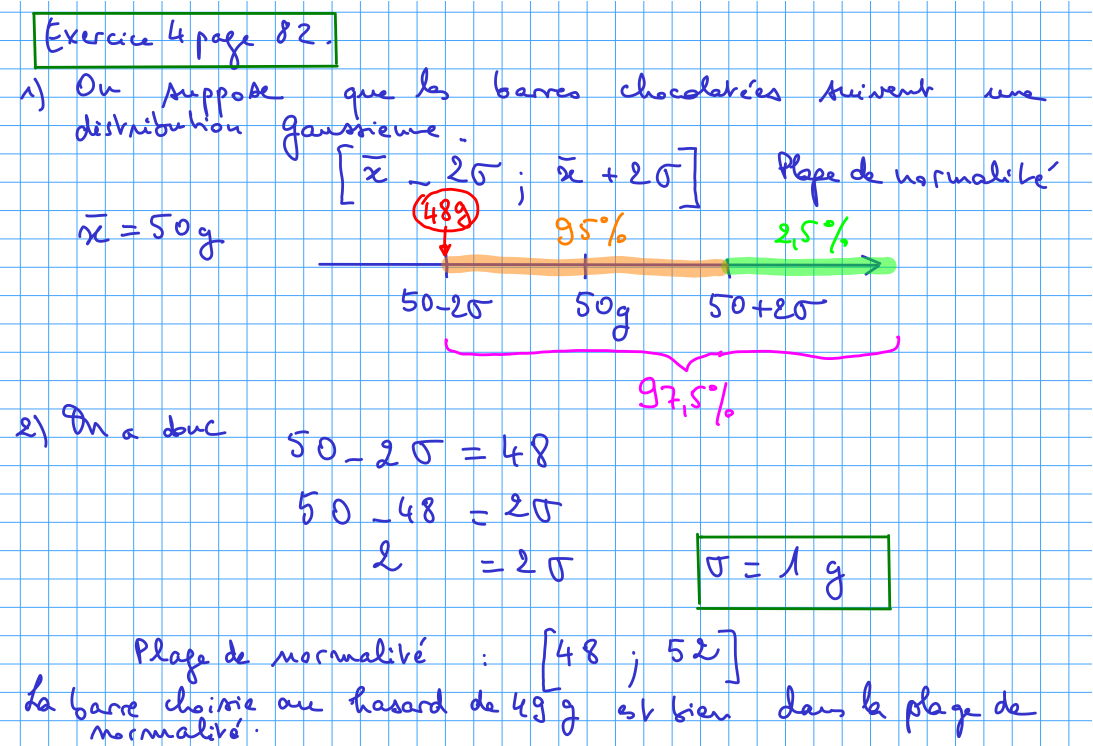 Exercice 4 page 82.
1) On suppose que les barres chocolatées suivent une
distribution gaussienne.
[x̄ - 2σ ; x̄ + 2σ] Plage de normalité
x̄ = 50g
48g 95% 2,5%
50-2σ 50g 50+2σ
97,5%
2) On a donc
50 - 2σ = 48
50 - 48 = 2σ
2 = 2σ
σ = 1 g
Plage de normalité : [48 ; 52]
La barre choisie au hasard de 49 g est bien dans la plage de
normalité.